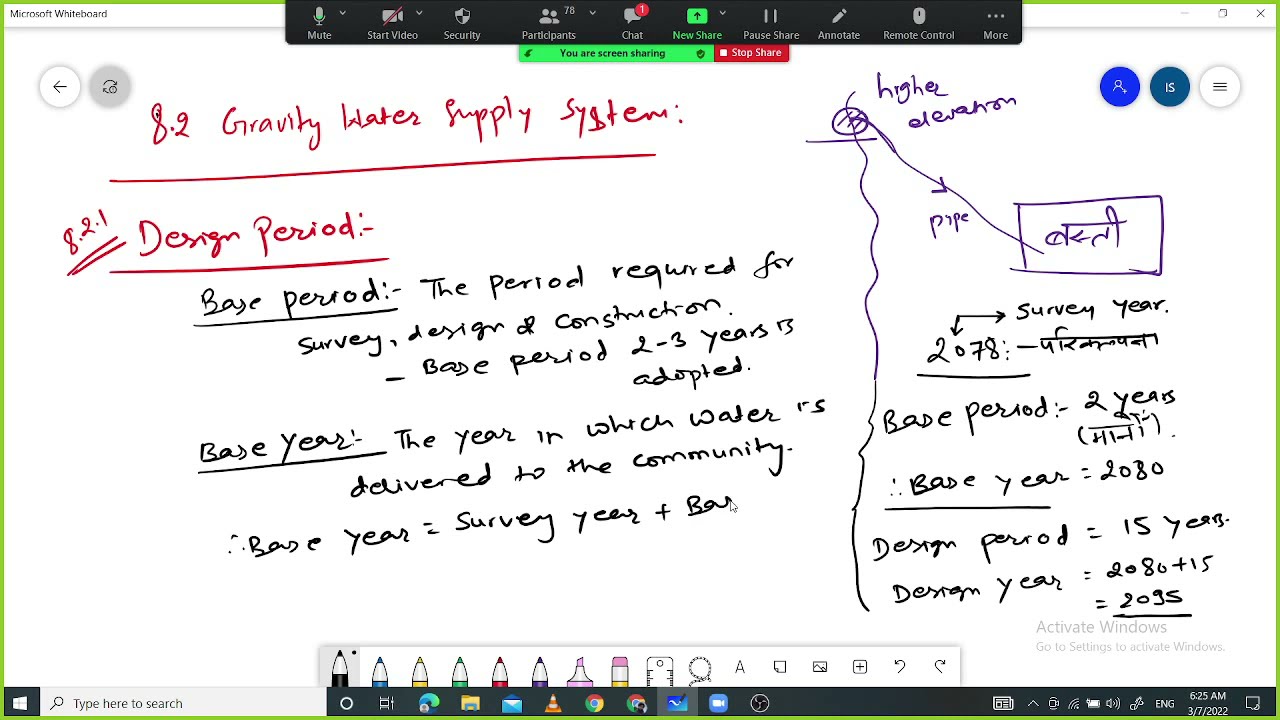 Microsoft Whiteboard
Mute
Start Video
Security
78
Participants
1
Chat
New Share
Pause Share
Annotate
Remote Control
More
You are screen sharing
Stop Share
IS
8.2 Gravity Water Supply System:
8.2.1 Design Period:-
Base period:- The period required for
survey, design & construction.
- Base period 2-3 years is
adopted.
Base Year:- The year in which water is
delivered to the community.
∴Base year = Survey year + Bas
higher
elevation
pipe
बस्ती
survey year.
2078:- परिकल्पना
Base period:- 2 years
∴Base year = 2080
Design period = 15 years.
Design year = 2080+15
= 2095
Activate Windows
Go to Settings to activate Windows.
A
Type here to search
ENG
6:25 AM
3/7/2022